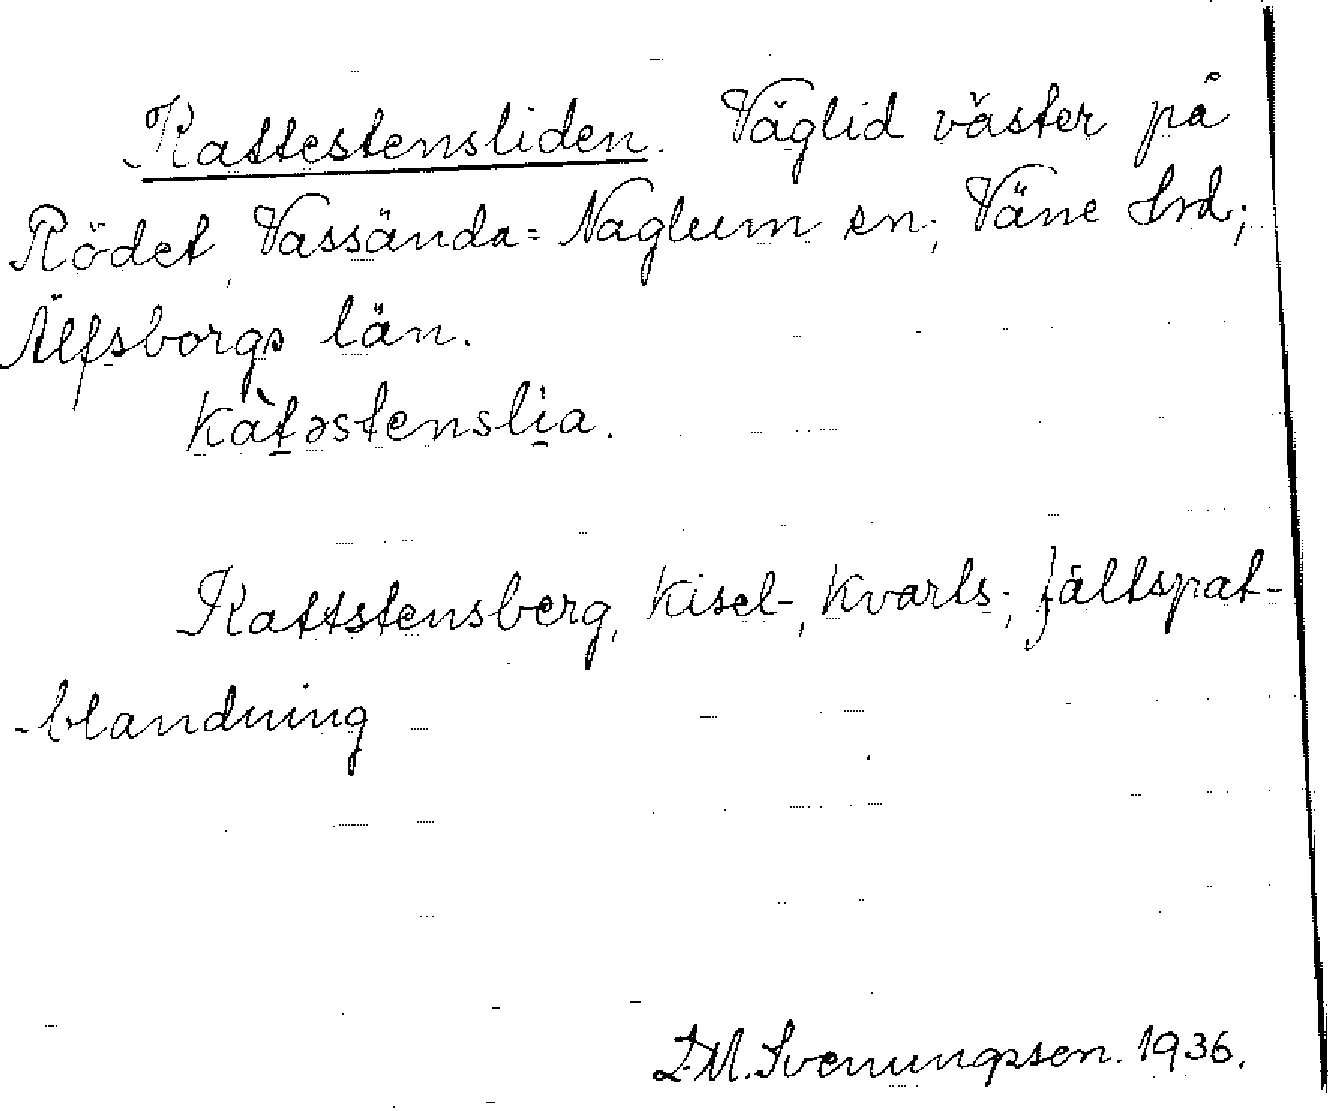 Kattestensliden. Väglid väster på
Rödet, Vassända=Naglum sn; Väne hrd;
Älfsborgs län.
kàt̠əstensli̠a.
Kattstensberg, Kisel-, Kvarts-, fältspat-
-blandning
L.M. Svenungsson. 1936.